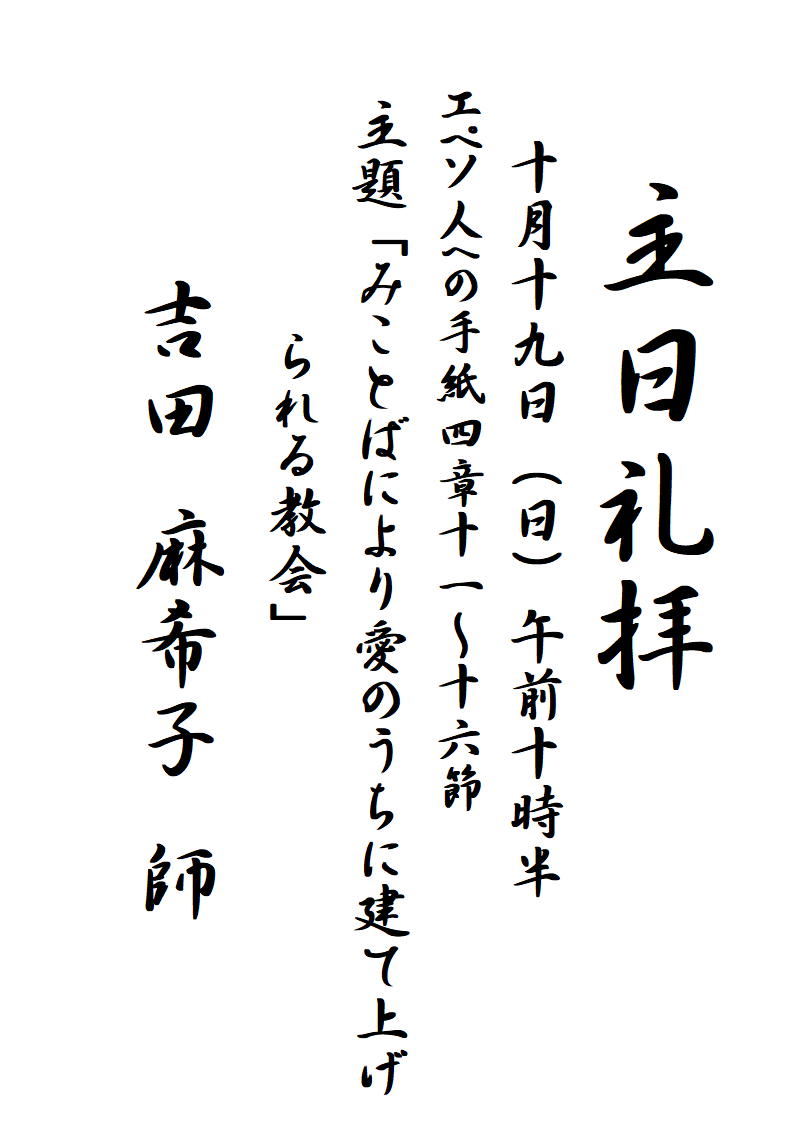 主日礼拝
十月十九日（日）午前十時半
エペソ人への手紙四章十一～十六節
主題「みことばにより愛のうちに建て上げ
られる教会」
吉田　麻希子　師